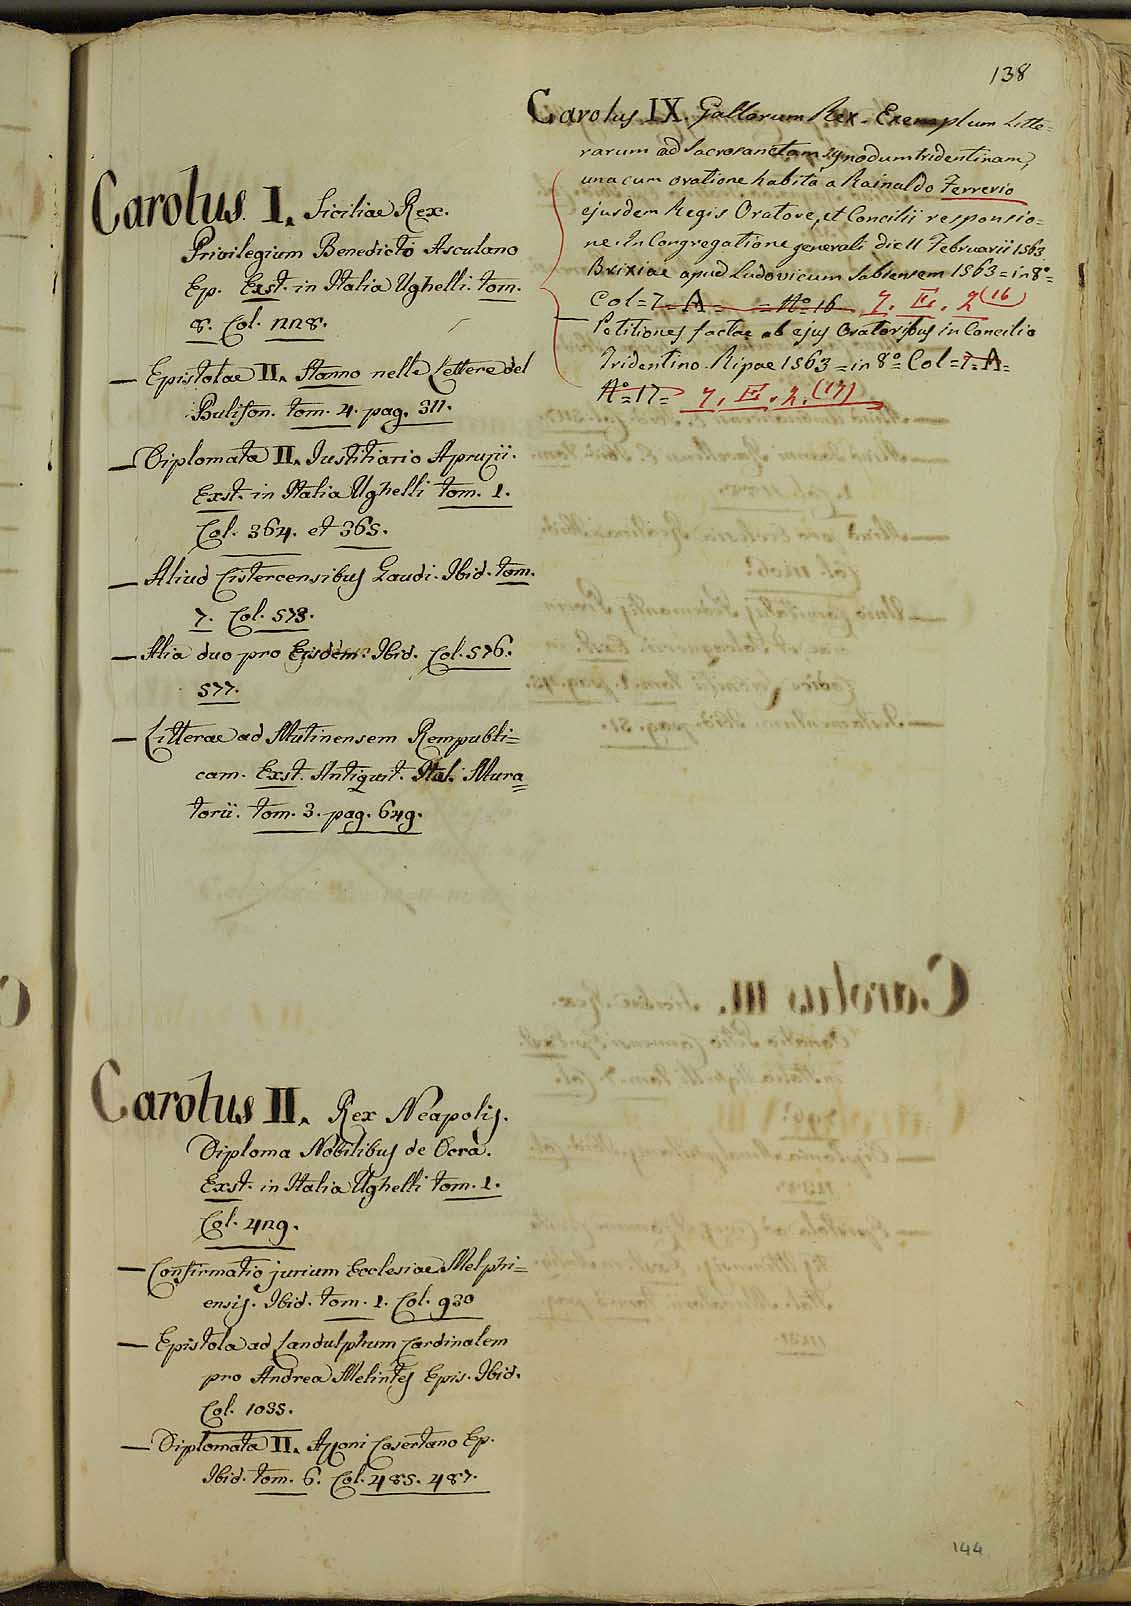 138
Carolus I. Siciliae Rex.
Privilegium Benedicto Asculano
Ep. Exst. in Italia Ughelli. tom.
8. Col. 1128.
— Epistolae II. Stanno nelle Lettere del
Bulifon. tom. 4. pag. 311.
— Diplomata II. Iustitiario Apruzii.
Exst. in Italia Ughelli tom. 1.
Col. 364. et 365.
— Aliud Cistercensibus Laudi. Ibid. tom.
7. Col. 573.
— Alia duo pro Eisdem. Ibid. Col. 576.
577.
— Litterae ad Mutinensem Rempubli=
cam. Exst. Antiquit. Ital. Mura=
torii. tom. 3. pag. 649.
Carolus II. Rex Neapolis.
Diploma Nobilibus de Ocrà.
Exst. in Italia Ughelli tom. 1.
Col. 429.
— Confirmatio jurium Ecclesiae Melphi=
ensis. Ibid. tom. 1. Col. 930
— Epistola ad Landulphum Cardinalem
pro Andrea Epis. Ibid.
Col. 1035.
— Diplomata II. Azzoni Casertano Ep.
Ibid. tom. 6. Col. 485. 487.
Carolus IX. Gallorum Rex. Exemplum Litte=
rarum ad Sacrosanctam Synodum tridentinam,
una cum oratione habità a Rainaldo Ferrerio
ejusdem Regis Oratore, et Concilii responsio=
ne. In Congregatione generali die 11 Februarii 1563.
Brixiae apud Ludovicum Sabiensem 1563 = in 8°=
Col = 7 = A = = N° 16 7. E. 2 (16)
— Petitiones factae ab ejus Oratoribus in Concilio
Tridentino. Ripae 1563 = in 8° Col = 7 = A =
N° = 17 = 7. E. 2. (17)
144